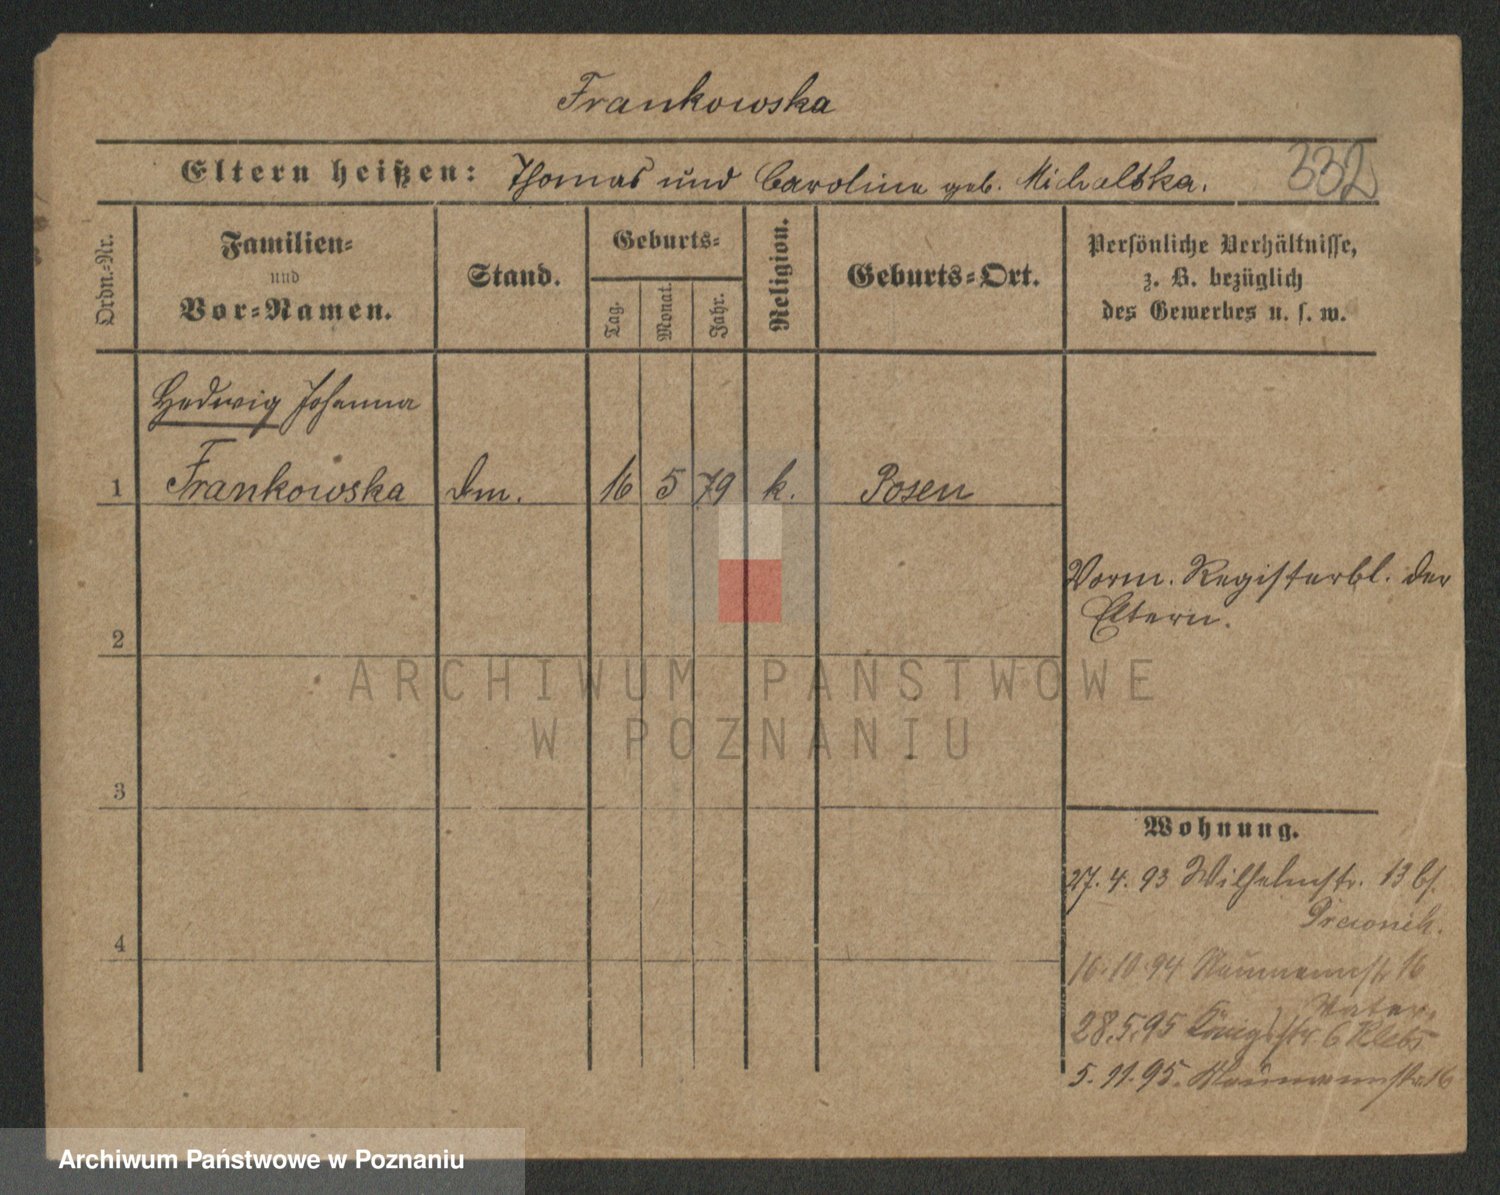 Frankowska
Eltern heißen: Thomas und Caroline geb. Michalska.
332
Ordn.-Nr.
Familien-
und
Vor-Namen.
Stand.
Geburts-
Tag.
Monat.
Jahr.
Religion.
Geburts-Ort.
Persönliche Verhältnisse,
z. B. bezüglich
des Gewerbes u. s. w.
Hedwig Johanna
1 Frankowska 16 5 79 k. Posen
Vorm. Registerbl. der
Eltern.
2
ARCHIWUM PAŃSTWOWE
W POZNANIU
3
Wohnung.
27.4.93 Wilhelmstr. 13 b/.
4
16.10.94 Naumannstr 16
Vater.
28.5.95 Königstr 6 Klebs
5.11.95. Naumannstr 16
Archiwum Państwowe w Poznaniu